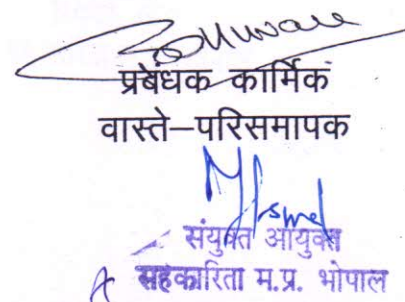 प्रबंधक कार्मिक
वास्ते–परिसमापक
संयुक्त आयुक्त
सहकारिता म.प्र. भोपाल